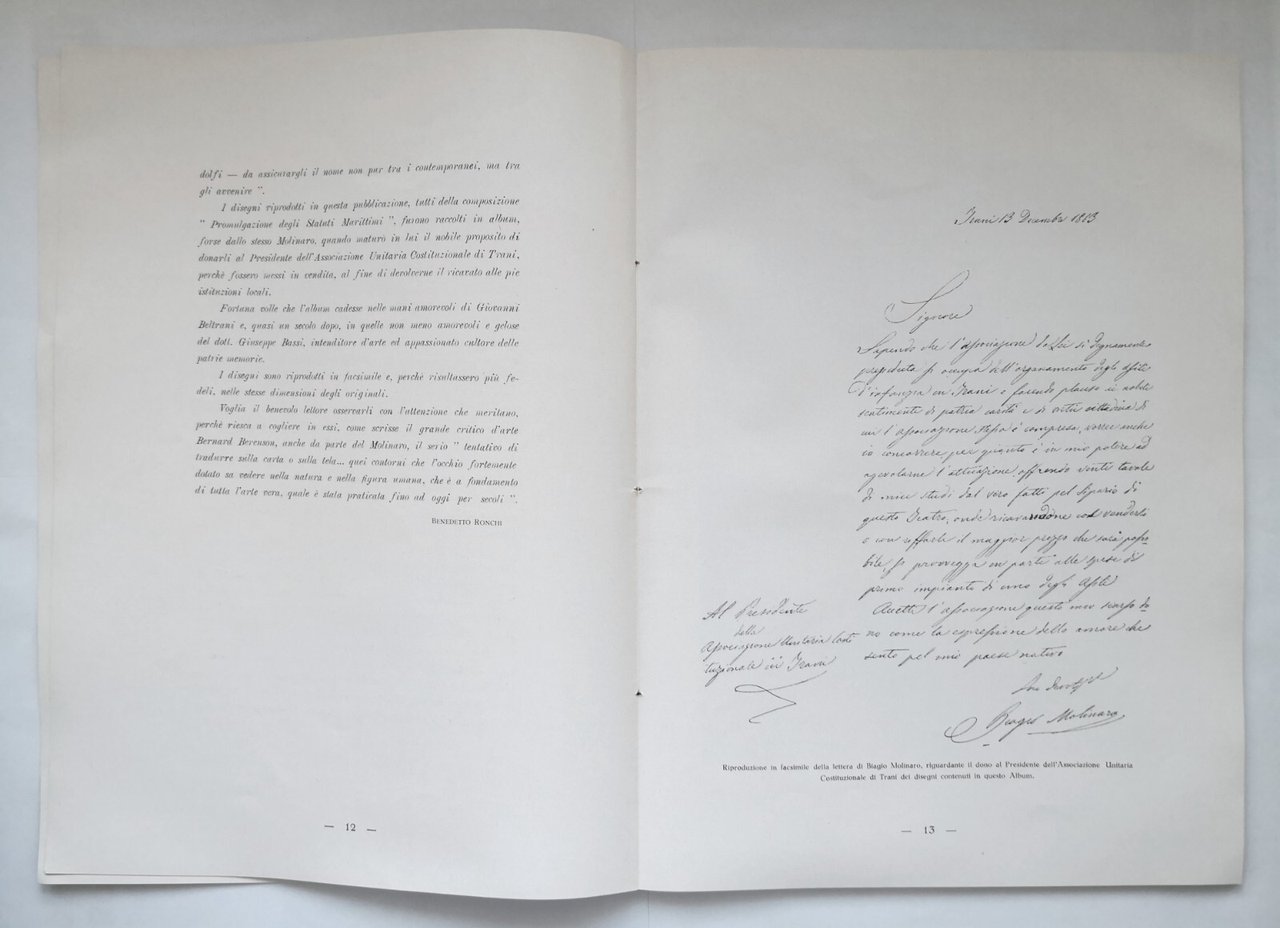 dolfi — da assicurargli il nome non pur tra i contemporanei, ma tra
gli avvenire ".
I disegni riprodotti in questa pubblicazione, tutti della composizione
" Promulgazione degli Statuti Marittimi ", furono raccolti in album,
forse dallo stesso Molinaro, quando maturò in lui il nobile proposito di
donarli al Presidente dell'Associazione Unitaria Costituzionale di Trani,
perchè fossero messi in vendita, al fine di devolverne il ricavato alle pie
istituzioni locali.
Fortuna volle che l'album cadesse nelle mani amorevoli di Giovanni
Beltrani e, quasi un secolo dopo, in quelle non meno amorevoli e gelose
del dott. Giuseppe Bassi, intenditore d'arte ed appassionato cultore delle
patrie memorie.
I disegni sono riprodotti in facsimile e, perchè risultassero più fe-
deli, nelle stesse dimensioni degli originali.
Voglia il benevolo lettore osservarli con l'attenzione che meritano,
perchè riesca a cogliere in essi, come scrisse il grande critico d'arte
Bernard Berenson, anche da parte del Molinaro, il serio " tentativo di
tradurre sulla carta o sulla tela... quei contorni che l'occhio fortemente
dotato sa vedere nella natura e nella figura umana, che è a fondamento
di tutta l'arte vera, quale è stata praticata fino ad oggi per secoli ".
BENEDETTO RONCHI
— 12 —
Trani 13 Decembre
Signore
Sapendo che l'associazione da Lei sì degnamente
presieduta si occupa dell'organamento degli asili
d'infanzia in Trani e facendo plauso ai nobili
sentimenti di patria carità e di virtù cittadina di
cui l'associazione stessa è compresa, vorrei anche
io concorrere per quanto è in mio potere ad
agevolarne l'attuazione offrendo venti tavole
di miei studi dal vero fatti pel Sipario di
questo Teatro, onde ricavandone col venderli
o con riffarli il maggior prezzo che sarà possi-
bile, si provvegga in parte alle spese di
primo impianto di uno degli asili
Accetti l'associazione questo mio scarso do-
no come la espressione dello amore che
sento pel mio paese nativo
Biagio Molinaro
Al Presidente
della
Associazione Unitaria Costi
tuzionale in Trani
Riproduzione in facsimile della lettera di Biagio Molinaro, riguardante il dono al Presidente dell'Associazione Unitaria
Costituzionale di Trani dei disegni contenuti in questo Album.
— 13 —